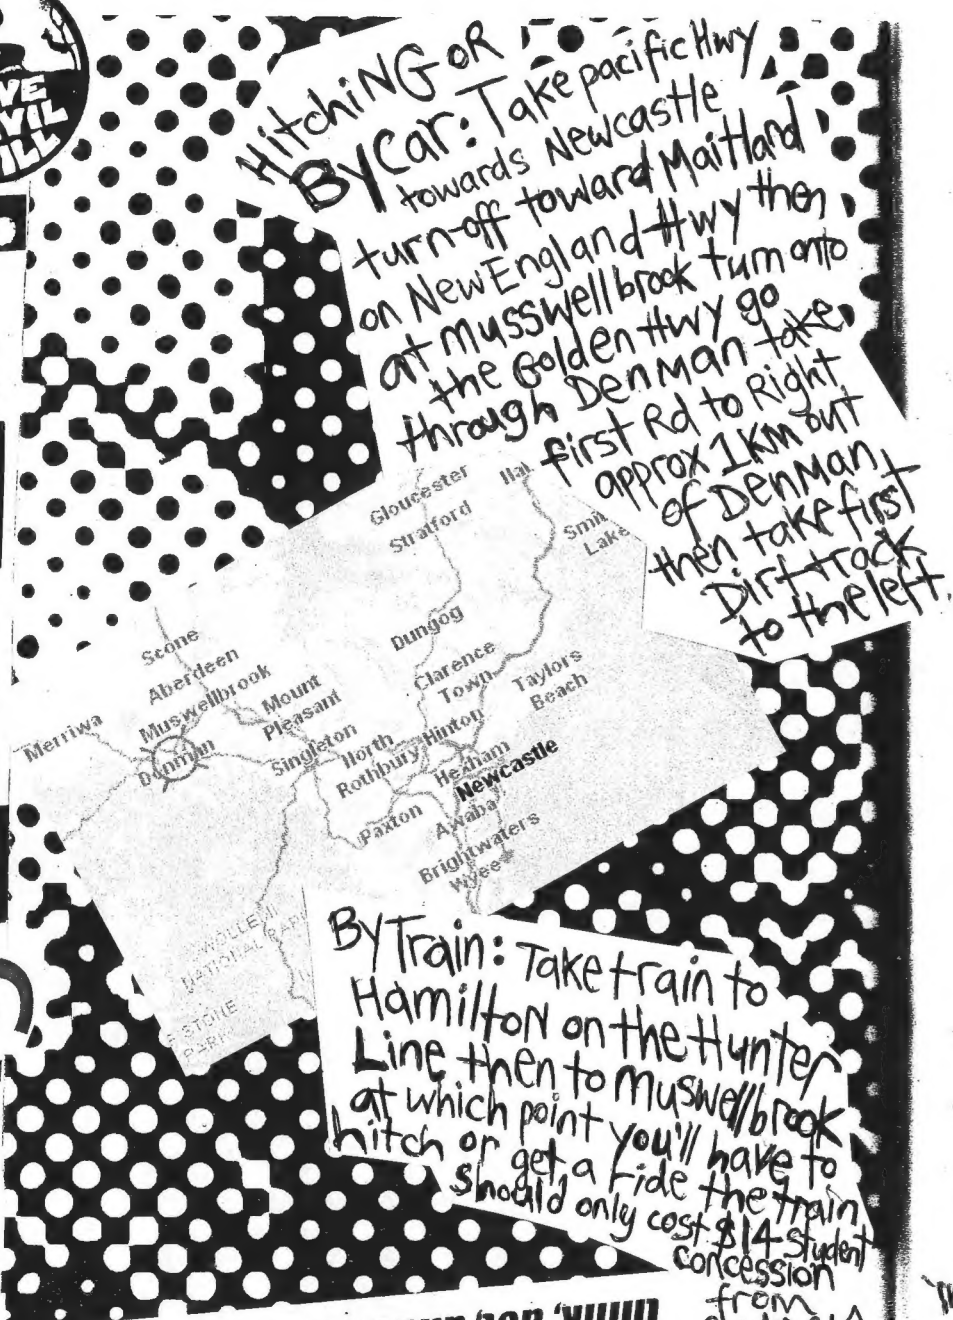 HitchiNG oR
By Car: Take pacific Hwy
towards Newcastle
turn-off toward Maitland
on New England Hwy then
at Musswellbrook turn onto
the Golden Hwy go
through Denman take
first Rd to Right
approx 1KM out
of DenMan
then take first
Dirt track
to the left.
Gloucester
Stratford
Lake
Dungog
Scone
Aberdeen
Muswellbrook
Merriwa
Denman
Mount
Pleasant
Clarence
Town
Taylors
Beach
Singleton
North
Rothbury
Hinton
Hexham
Newcastle
Paxton
Awaba
Brightwaters
Wyee
WOLLEMI
NATIONAL PARK
STONE
By Train: Take train to
Hamilton on the Hunter
Line then to Muswellbrook
at which point you'll have to
hitch or get a ride the train
should only cost $14 student
concession
from